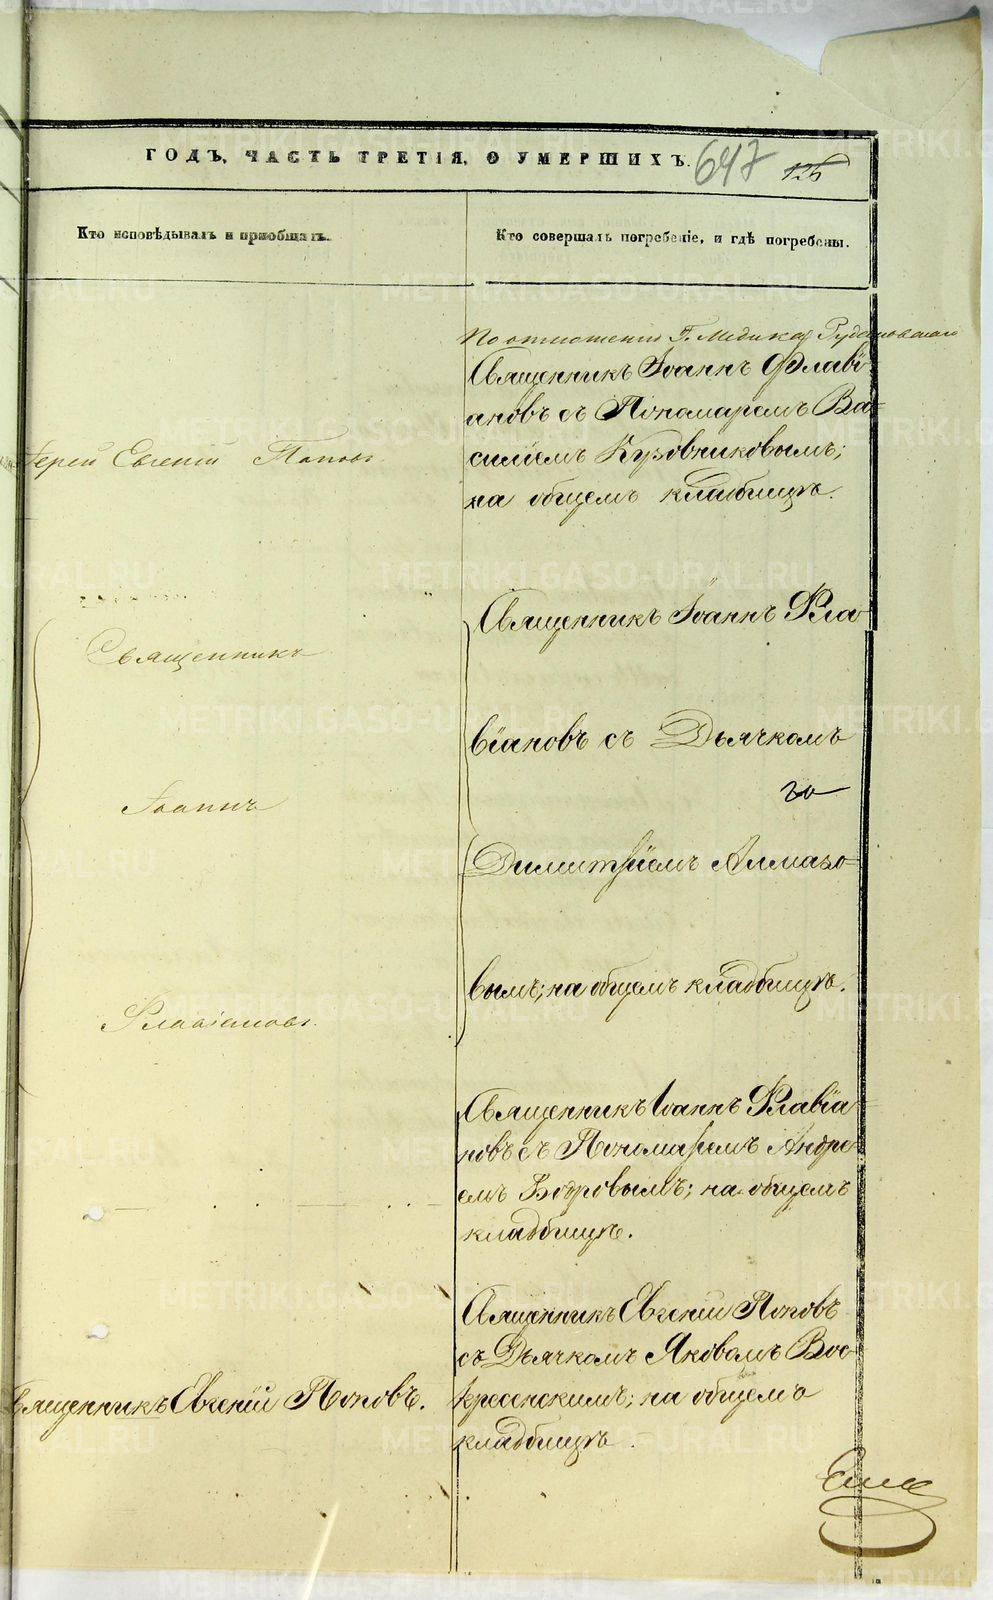 ГОДЪ, ЧАСТЬ ТРЕТІЯ, О УМЕРШИХЪ.
647
Кто исповѣдывалъ и пріобщалъ.
Кто совершалъ погребеніе, и гдѣ погребены.
По отношенію Г. Медика
Священникъ Іоаннъ Флаві-
ановъ съ Пономаремъ Ва-
силіемъ Кузовниковымъ;
на общемъ кладбищѣ.
Іерей Евгеній Поповъ
Священникъ
Іоаннъ
Флавіановъ.
Священникъ Іоаннъ Фла-
віановъ съ Дьячкомъ
Димитріемъ Алмазо-
вымъ; на общемъ кладбищѣ.
Священникъ Іоаннъ Флавіа-
новъ съ Пономаремъ Андре-
емъ Бобровымъ; на общемъ
кладбищѣ.
Священникъ Евгеній Поповъ.
Священникъ Евгеній Поповъ
съ Дьячкомъ Яковомъ Вос-
кресенскимъ; на общемъ
кладбищѣ.
METRIKI.GASO-URAL.RU